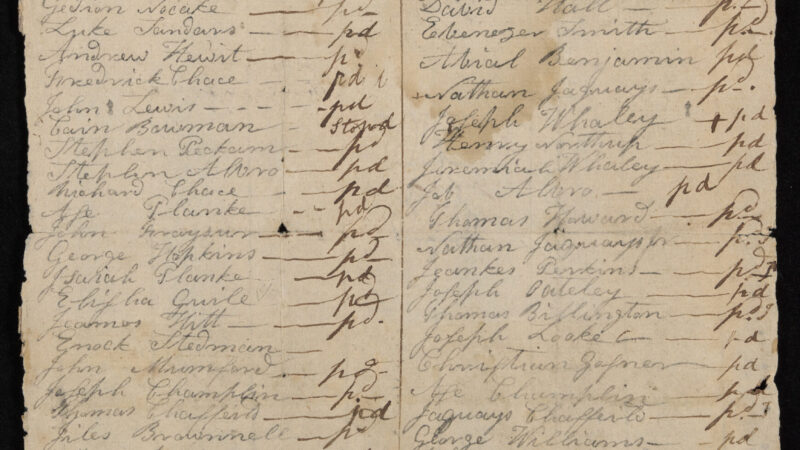 Gedion Nocake — pd
Luke Sandars — pd
Andrew Hewit — p
Fredrick Chace — pd
John Lewis - - - - pd
Cain Bowman — Stopd
Stephen Peckam — pd
Stephen Albro — pd
Richard Chace — pd
Asa Planke - - pd
John — pd
George Hopkins — pd
Planke — pd
Elisha Guile — pd
Jeames Hitt — pd.
Enock Stedman —
John Mumford — pd
Joseph Champlin — pd
Thomas Chaffeild — pd
Jiles Brownnell — pd
David Hall — pd
Ebenezer Smith — pd
Abial Benjamin pd
Nathan Jaquays — pd.
Joseph Whaley + pd
Henry Northup — pd
Jeremiah Whaley — pd
Job Albro — pd
Thomas Howard — pd
Nathan Jaquays — pd
Jeankes Perkins — pd
Joseph — pd
Thomas Billington — pd
Joseph Looke — pd
Christian — pd
Champlin pd
Jaquays Chaffeild — pd
George Williams — pd